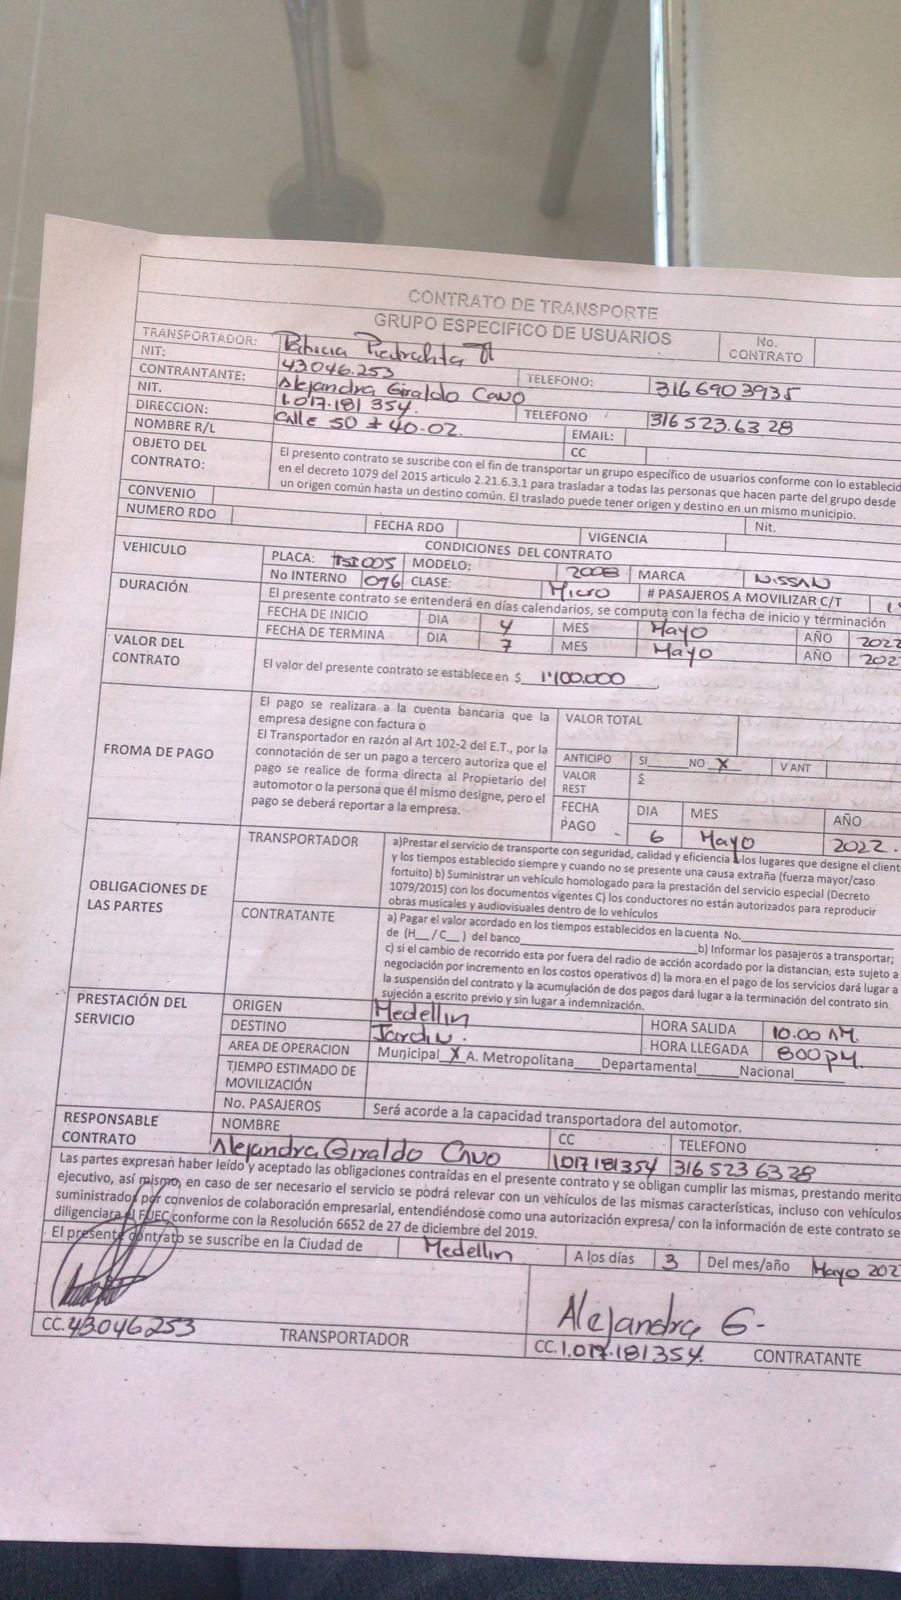 CONTRATO DE TRANSPORTE
GRUPO ESPECIFICO DE USUARIOS
No. CONTRATO
TRANSPORTADOR: Patricia Piedrahita
NIT: 43046.253 TELEFONO: 316 690 3935
CONTRANTANTE: Alejandra Giraldo Cano
NIT. 1.017.181 354. TELEFONO : 316 523.63 28
DIRECCION: Calle 50 # 40-02. EMAIL:
NOMBRE R/L CC
OBJETO DEL CONTRATO: El presento contrato se suscribe con el fin de transportar un grupo específico de usuarios conforme con lo establecid
en el decreto 1079 del 2015 articulo 2.21.6.3.1 para trasladar a todas las personas que hacen parte del grupo desde
un origen común hasta un destino común. El traslado puede tener origen y destino en un mismo municipio.
CONVENIO Nit.
NUMERO RDO FECHA RDO VIGENCIA
CONDICIONES DEL CONTRATO
VEHICULO PLACA: 005 MODELO: 2008 MARCA NISSAN
No INTERNO 096 CLASE: Micro # PASAJEROS A MOVILIZAR C/T
DURACIÓN El presente contrato se entenderá en días calendarios, se computa con la fecha de inicio y terminación
FECHA DE INICIO DIA 4 MES Mayo AÑO 2022
FECHA DE TERMINA DIA 7 MES Mayo AÑO 202
VALOR DEL CONTRATO El valor del presente contrato se establece en $ 1'100.000
FROMA DE PAGO El pago se realizara a la cuenta bancaria que la
empresa designe con factura o
El Transportador en razón al Art 102-2 del E.T., por la
connotación de ser un pago a tercero autoriza que el
pago se realice de forma directa al Propietario del
automotor o la persona que él mismo designe, pero el
pago se deberá reportar a la empresa.
VALOR TOTAL
ANTICIPO SI____NO X V ANT
VALOR REST $
FECHA PAGO DIA MES AÑO
6 Mayo 2022.
OBLIGACIONES DE LAS PARTES
TRANSPORTADOR a)Prestar el servicio de transporte con seguridad, calidad y eficiencia a los lugares que designe el client
y los tiempos establecido siempre y cuando no se presente una causa extraña (fuerza mayor/caso
fortuito) b) Suministrar un vehículo homologado para la prestación del servicio especial (Decreto
1079/2015) con los documentos vigentes C) los conductores no están autorizados para reproducir
obras musicales y audiovisuales dentro de lo vehículos
CONTRATANTE a) Pagar el valor acordado en los tiempos establecidos en la cuenta No.
de (H__/C__) del banco____b) Informar los pasajeros a transportar;
c) si el cambio de recorrido esta por fuera del radio de acción acordado por la distancian, esta sujeto a
negociación por incremento en los costos operativos d) la mora en el pago de los servicios dará lugar a
la suspensión del contrato y la acumulación de dos pagos dará lugar a la terminación del contrato sin
sujeción a escrito previo y sin lugar a indemnización.
PRESTACIÓN DEL SERVICIO
ORIGEN Medellin HORA SALIDA 10.00 AM.
DESTINO Jardin. HORA LLEGADA 800 PM.
AREA DE OPERACION Municipal X A. Metropolitana____Departamental____Nacional____
TIEMPO ESTIMADO DE MOVILIZACIÓN
No. PASAJEROS Será acorde a la capacidad transportadora del automotor.
RESPONSABLE CONTRATO NOMBRE CC TELEFONO
Alejandra Giraldo Cano 1.017 181354 316 523 6328
Las partes expresan haber leído y aceptado las obligaciones contraídas en el presente contrato y se obligan cumplir las mismas, prestando merito
ejecutivo, así mismo, en caso de ser necesario el servicio se podrá relevar con un vehículos de las mismas características, incluso con vehículos
suministrados por convenios de colaboración empresarial, entendiéndose como una autorización expresa/ con la información de este contrato se
diligenciara el FUEC conforme con la Resolución 6652 de 27 de diciembre del 2019.
El presente contrato se suscribe en la Ciudad de Medellin A los días 3 Del mes/año Mayo 202
Alejandra G-
CC. 43046253 TRANSPORTADOR
CC. 1.017.181354. CONTRATANTE